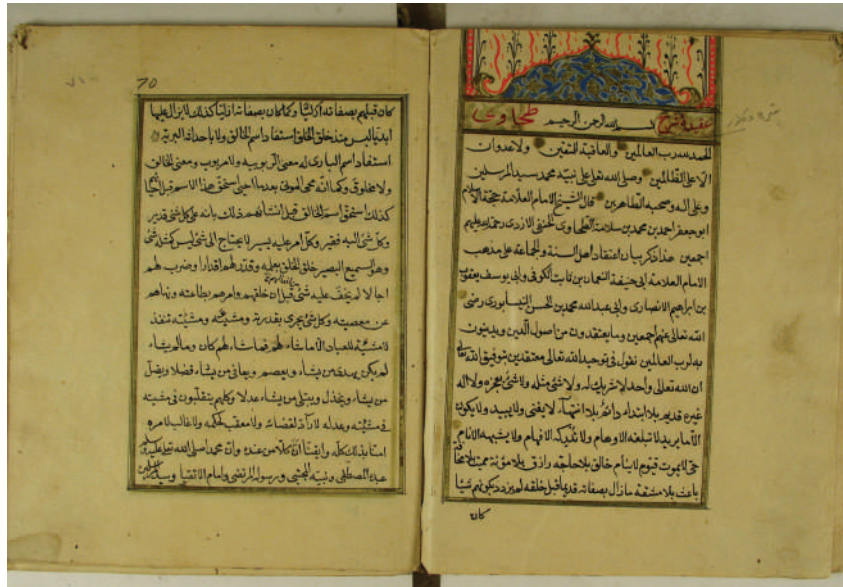 عقيدة شرح
بسم الله الرحمن الرحيم
طحاوى
الحمد لله رب العالمين والعاقبة للمتقين ولا عدوان
الا على الظالمين وصلى الله تعالى على نبيه محمد سيد المرسلين
وعلى اله وصحبه الطاهرين قال الشيخ الامام العلامة حجة الاسلام
ابو جعفر احمد بن محمد بن سلامة الطحاوى الحنفى الازدى رحمة الله عليهم
اجمعين هذا ذكر بيان اعتقاد اهل السنة والجماعة على مذهب
الامام العلامة ابى حنيفة النعمان بن ثابت الكوفى وابى يوسف يعقوب
بن ابراهيم الانصارى وابى عبد الله محمد بن الحسن رضى
الله تعالى عنهم اجمعين وما يعتقدون من اصول الدين ويدينون
به لرب العالمين نقول فى توحيد الله تعالى معتقدين بتوفيق الله تعالى
ان الله تعالى واحد لا شريك له ولا شئ مثله ولا شئ يعجزه ولا اله
غيره قديم بلا ابتداء دائم بلا انتهاء لا يفنى ولا يبيد ولا يكون
الا ما يريد لا تبلغه الاوهام ولا تدركه الافهام ولا يشبهه الانام
حى لا يموت قيوم لا ينام خالق بلا حاجة رازق بلا مؤنة مميت بلا مخافة
باعث بلا مشقة ما زال بصفاته قديما قبل خلقه لم يزدد بكونهم شيئا
كان
70
كان قبلهم بصفاته ازليا وكما كان بصفاته ازليا كذلك لا يزال عليها
ابديا ليس منذ خلق الخلق استفاد اسم الخالق ولا باحداثه البرية
استفاد اسم البارى له معنى الربوبيه ولا مربوب ومعنى الخالق
ولا مخلوق وكما انه محى الموتى بعد ما احيى استحق هذا الاسم قبل احيائهم
كذلك استحق اسم الخالق قبل انشائهم ذلك بانه على كل شئ قدير
وكل شئ اليه فقير وكل امر عليه يسير لا يحتاج الى شئ ليس كمثله شئ
وهو السميع البصير خلق الخلق بعلمه وقدر لهم اقدارا وضرب لهم
اجالا لم يخف عليه شئ قبل ان خلقهم وامرهم بطاعته ونهاهم
عن معصيته وكل شئ يجرى بقدرته ومشيته ومشيته تنفذ
لا مشية للعباد الا ما شاء لهم فما شاء لهم كان وما لم يشاء
لم يكن يهدى من يشاء ويعصم ويعافى من يشاء فضلا ويضل
من يشاء ويخذل ويبتلى من يشاء عدلا وكلهم يتقلبون فى مشيته
فى مشيته وعدله لا راد لقضائه ولا معقب لحكمه ولا غالب لامره
امنا بذلك كله وايقنا ان كلا من عنده وان محمدا صلى الله تعالى عليه وسلم
عبده المصطفى ونبيه المجتبى ورسوله المرتضى وامام الاتقيا وسيد المرسلين